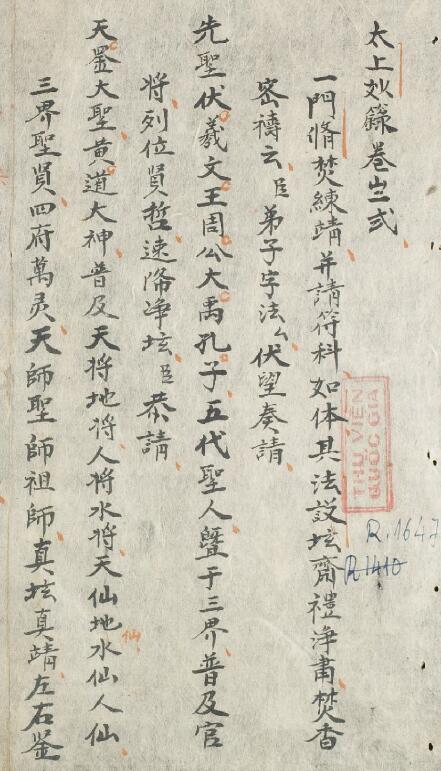 太上妙籙卷𠀧弍
一門脩焚練靖并請符科如体其法設坛齋禮净肅焚香
密禱云臣弟子字法厶伏望奏請
先聖伏羲文王周公大禹孔子五代聖人曁于三界普及官
将列位賢哲速降净坛臣恭請
天罡大聖黄道大神普及天将地将人将水将天仙地仙水仙人仙
三界聖賢四府萬灵天師聖師祖師真坛真靖左右鉴
THƯ VIỆN
QUỐC GIA
R.1647
R1410